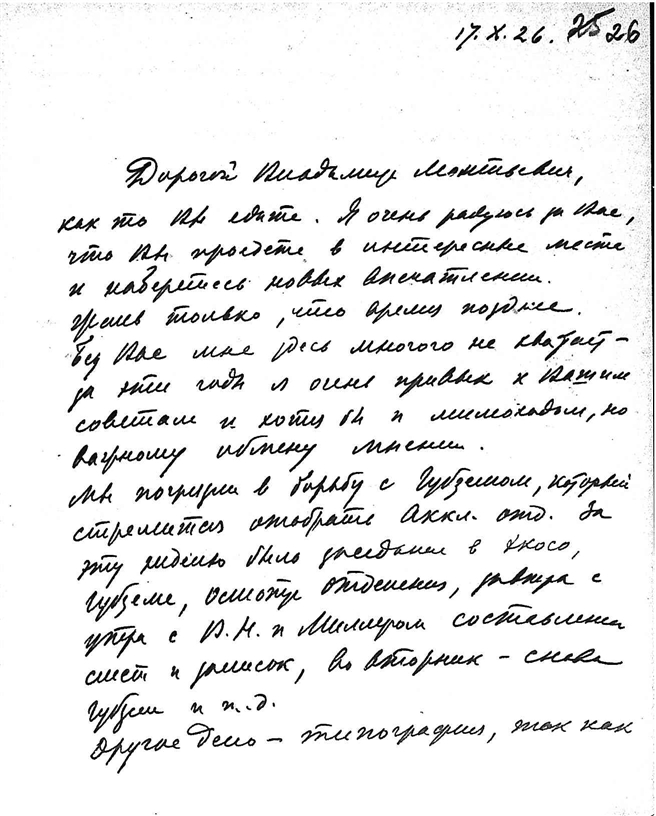 17.X.26. 25 26
Дорогой Владимир Леонтьевич,
как то Вы едите. Я очень радуюсь за Вас,
что Вы проедете в интересные места
и наберетесь новых впечатлений.
только, что время позднее.
Без Вас мне здесь многого не хватает –
за эти годы я очень привык к Вашим
советам и хотя бы и мимоходом, но
важному обмену мнений.
Мы погрязли в борьбу с Губземом, который
стремится отобрать Аккл. отд. За
эту неделю было заседание в
Губземе, осмотр отделения, завтра с
утра с В.Н. и Миллером составление
смет и записок, во вторник – снова
Губзем и т.д.
Другое дело – типография, так как